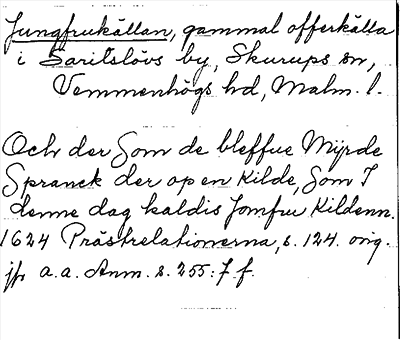 Jungfrukällan, gammal offerkälla
i Saritslövs by, Skurups sn,
Vemmenhögs hd, Malm. l.
Och der Som de bleffue Myrde
Spranck der op en Kilde, Som I
denne dag kaldis Jomfru Kildenn.
1624 Prästrelationerna, s. 124. orig.
jfr a.a. Anm. s. 255: 7 f.